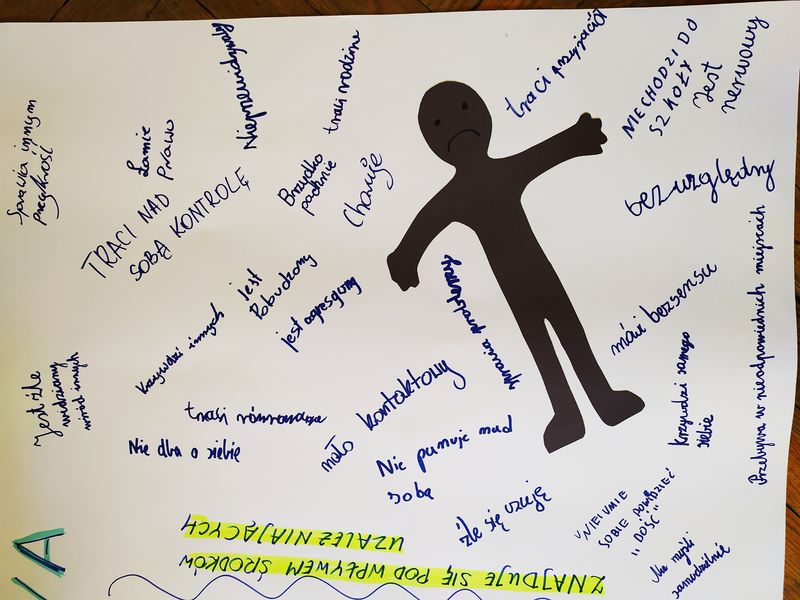 Sprawia innym
przykrość
Łamie
Prawo
Nieprzewidywalny
traci rodzinę
traci przyjaciół
NIECHODZI DO
SZKOŁY
Jest
nerwowy
TRACI NAD
SOBĄ KONTROLĘ
Brzydko
pachnie
Choruje
bezwzględny
Jest
Pobudzony
jest agresywny
Krzywdzi innych
sprawia problemy
mówi bezsensu
Przebywa w nieodpowiednich miejscach
Krzywdzi samego
siebie
Jest źle
widziany
wśród innych
traci równowagę
Nie dba o siebie
mało kontaktowy
Nie panuje nad
sobą
źle się czuje
"NIEUMIE
SOBIE POWIEDZIEĆ
"DOŚĆ"
Nie myśli
samodzielnie
ZNAJDUJE SIĘ POD WPŁYWEM ŚRODKÓW
UZALEŻNIAJĄCYCH